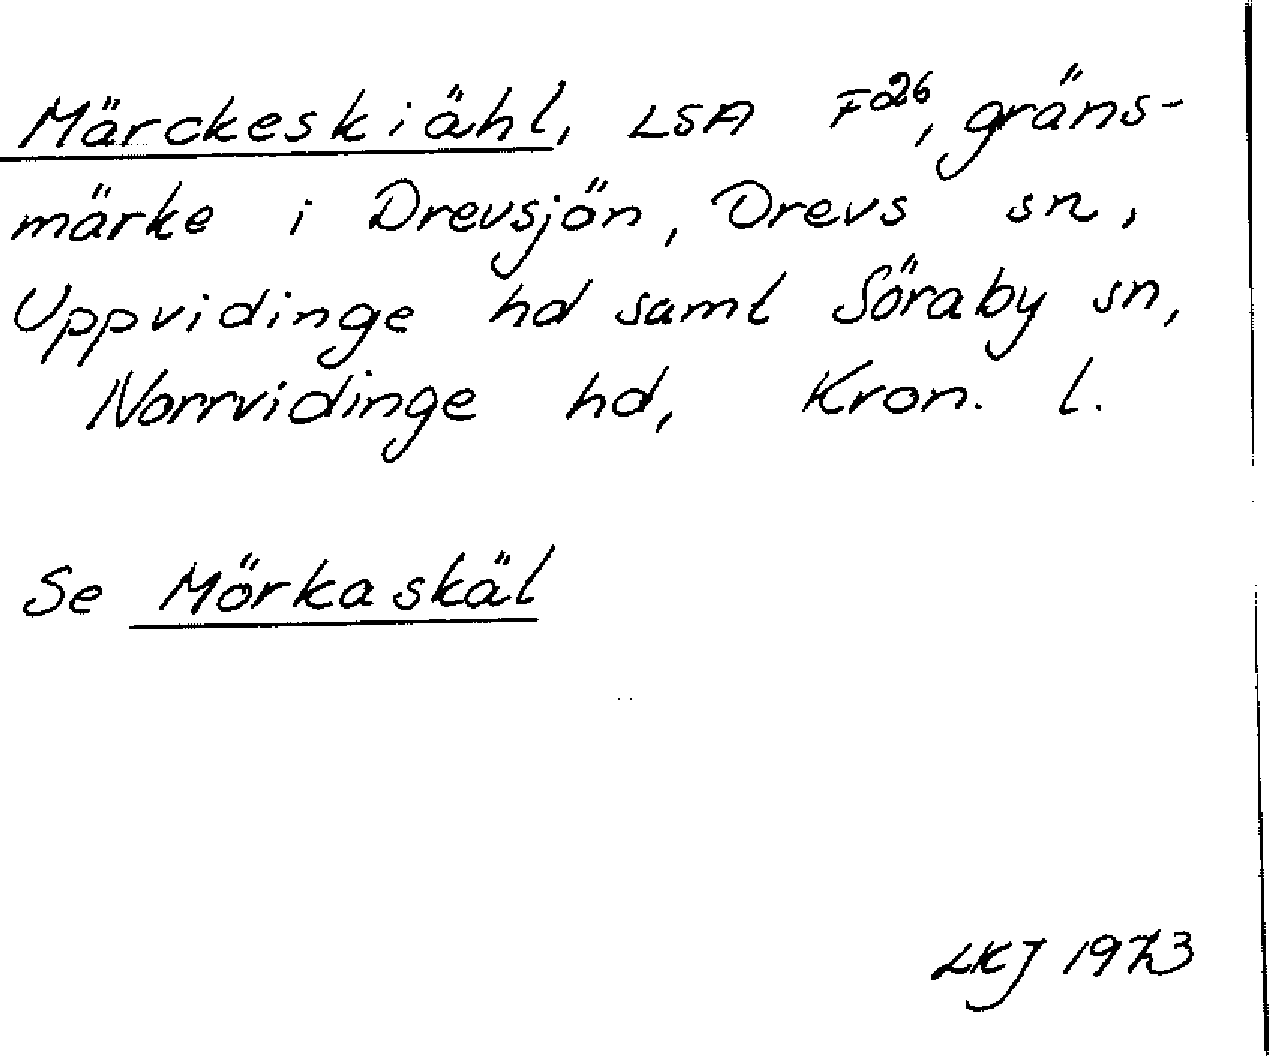 Märckeskiähl, LSA F²⁶, gräns-
märke i Drevsjön, Drevs sn,
Uppvidinge hd samt Söraby sn,
Norrvidinge hd, Kron. l.
Se Mörkaskäl
LKJ 1973